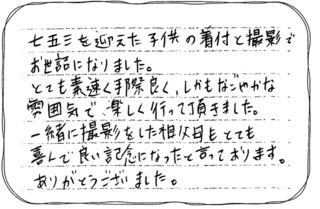 七五三を迎えた子供の着付と撮影で
お世話になりました。
とても素速く手際良く、しかもなごやかな
雰囲気で、楽しく行って頂きました。
一緒に撮影をした祖父母もとても
喜んで良い記念になったと言っております。
ありがとうございました。